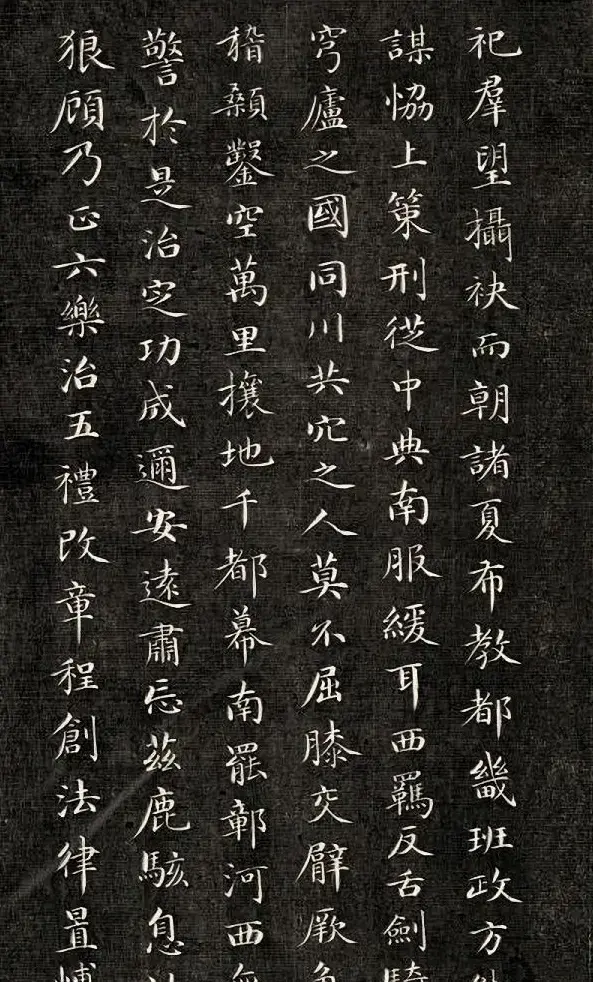 祀羣望攝袂而朝諸夏布教都畿班政方
謀恊上策刑從中典南服緩耳西羈反舌劍騎
穹廬之國同川共穴之人莫不屈膝交臂厥角
稽顙鑿空萬里攘地千都幕南罷鄣河西無
警於是治定功成邇安遠肅忘茲鹿駭息
狼顧乃正六樂治五禮改章程創法律置博